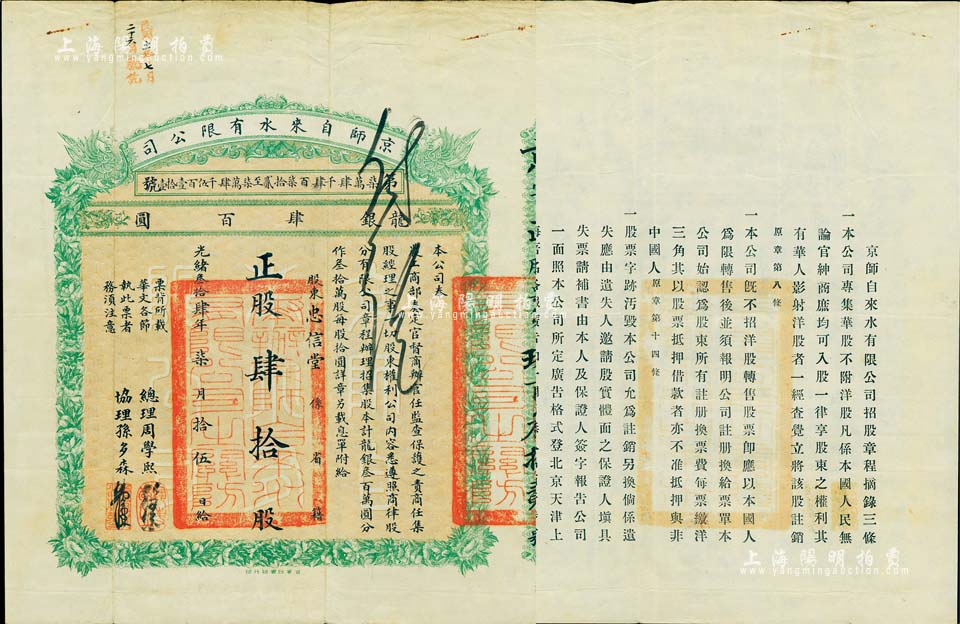 上海陽明拍賣
www.yangmingauction.com
京師自來水有限公司
第柒萬肆千肆百柒拾貳至柒萬肆千伍百壹拾壹號
龍銀肆百圓
股經理之事一切股東權利公司內容悉遵照商律股
分有限公司章程辦理招集股本計龍銀叁百萬圓分
作叁拾萬股每股拾圓詳章另載息單附給
股東忠信堂係 省 縣
正股肆拾股
光緒叁拾肆年柒月拾伍日給
總理周學熙
協理孫多森
票背所載
華文各節
執此票者
務須注意
京師自來水有限公司招股章程摘錄三條
一本公司專集華股不附洋股凡係本國人民無
論官紳商庶均可入股一律享股東之權利其
有華人影射洋股者一經查覺立將該股註銷
原章第八條
一本公司既不招洋股轉售股票即應以本國人
為限轉售後並須報明公司註册換給票單本
公司始認為股東所有註册換票費每票繳洋
三角其以股票抵押借款者亦不准抵押與非
中國人原章第十四條
一股票字跡汚毀本公司允為註銷另換倘係遺
失應由遺失人邀請殷實體面之保證人塡具
失票請補書由本人及保證人簽字報告公司
一面照本公司所定廣告格式登北京天津上
上海陽明拍賣
www.yangmingauction.com
上海陽明拍賣
www.yangmingauction.com
上海陽明拍賣
www.yangmingauction.com
上海陽明拍賣
www.yangmingauction.com